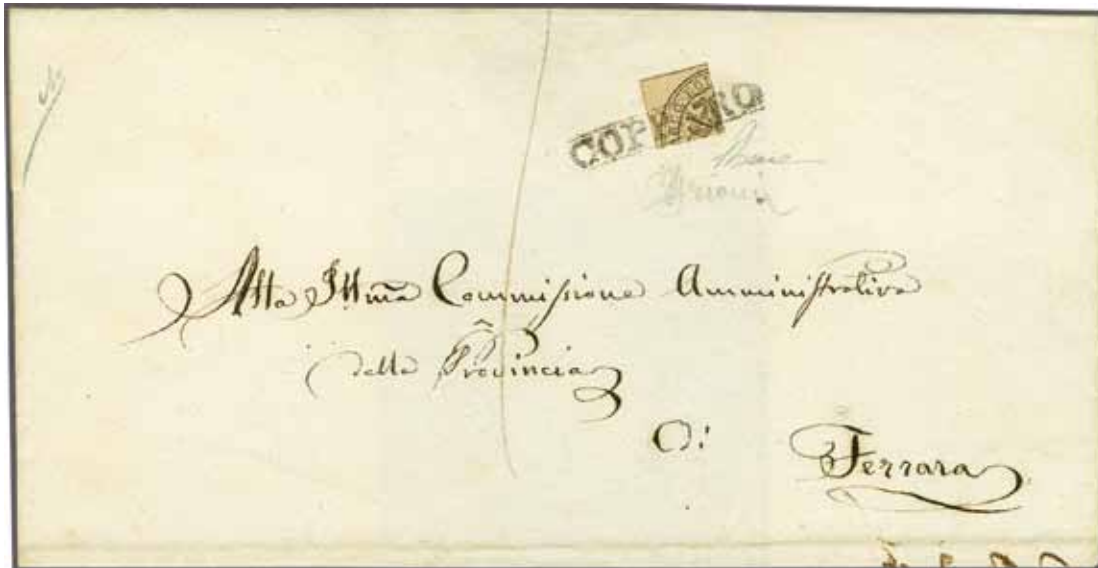 COPPARO
Alla Illma Commissione Amministrativa
della Provincia
Di
Ferrara